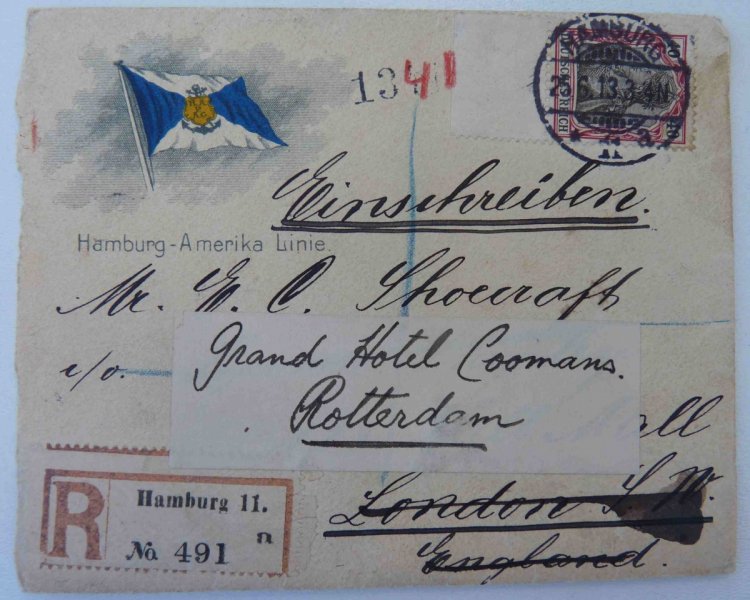 1341
HAMBURG
23.6.13.3-4N
11 a.
DEUTSCHES REICH
H.A.
P.
A.G.
Einschreiben.
Hamburg-Amerika Linie.
Mr. E. C. Shoecraft
c/o.
Grand Hotel Coomans.
Rotterdam
all
London S.W.
England.
R
Hamburg 11.
a
No 491